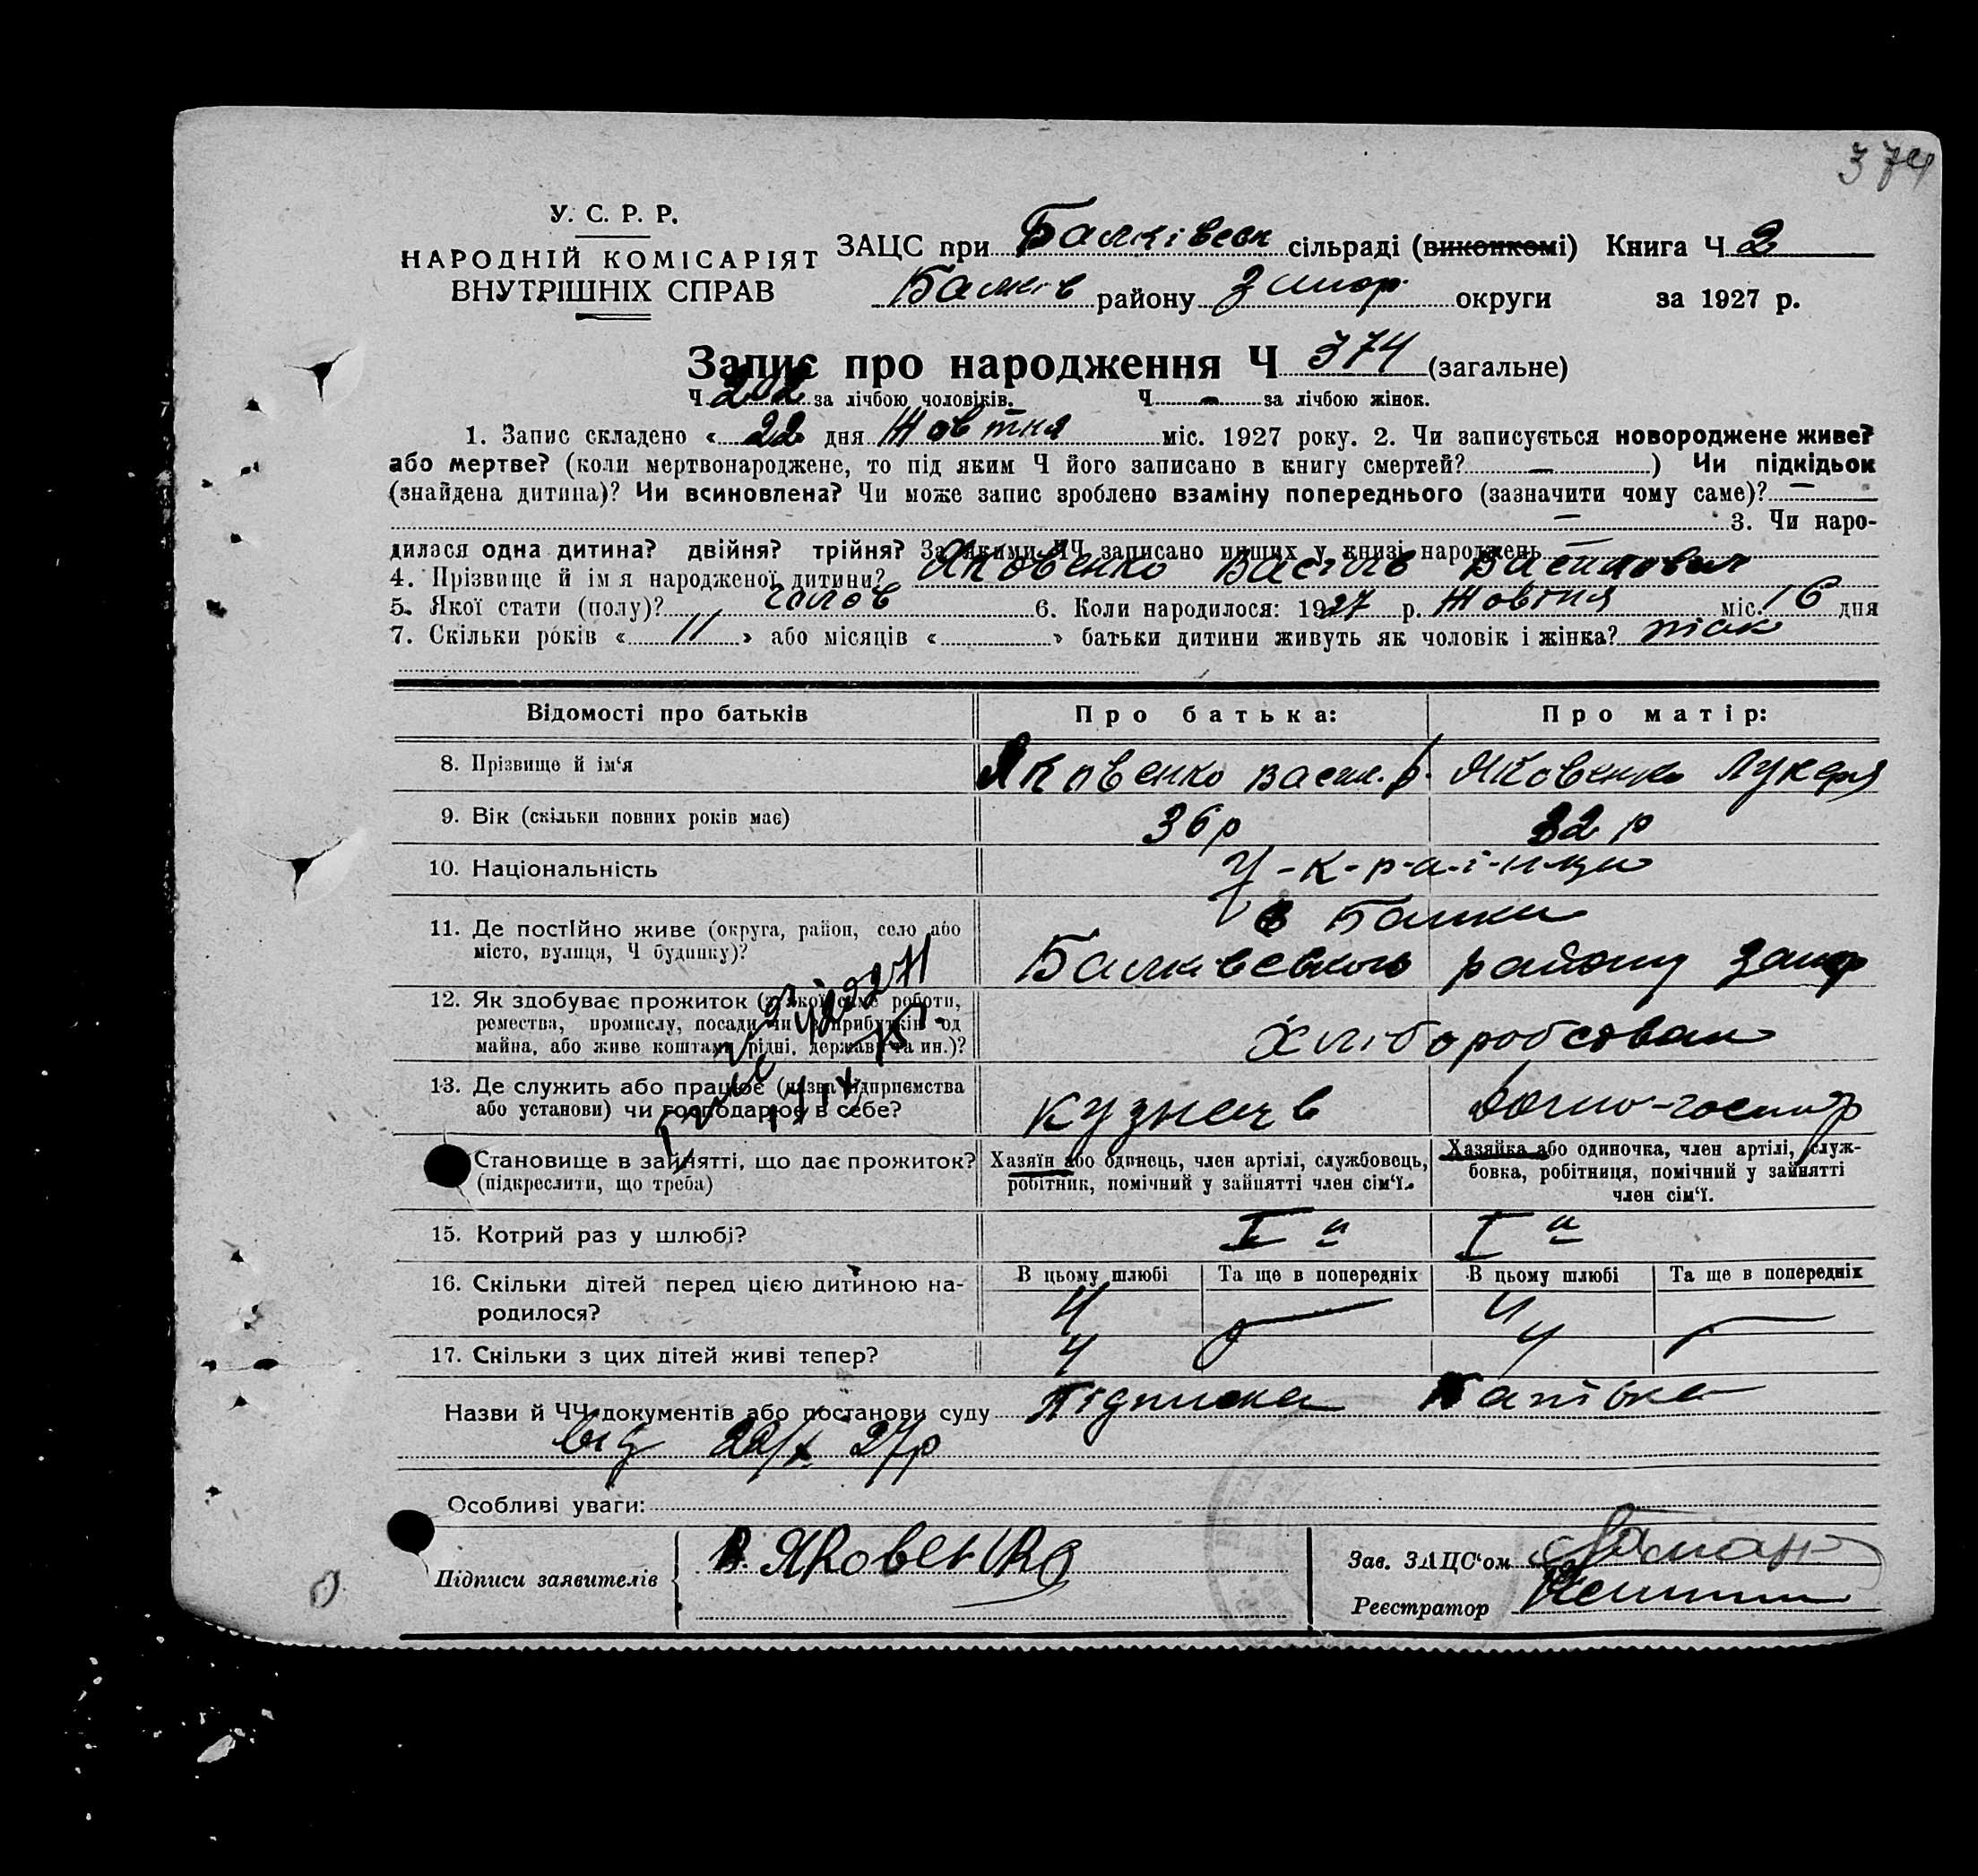 374
У. С. Р. Р.
НАРОДНІЙ КОМІСАРІЯТ
ВНУТРІШНІХ СПРАВ
ЗАЦС при Балківськ сільраді (виконкомі) Книга Ч 2
Балків району Запор. округи за 1927 р.
Запис про народження Ч 374 (загальне)
Ч 202 за лічбою чоловіків. Ч — за лічбою жінок.
1. Запис складено « 22 дня Жовтня міс. 1927 року. 2. Чи записується новороджене живе?
або мертве? (коли мертвонароджене, то під яким Ч його записано в книгу смертей? — ) Чи підкідьок
(знайдена дитина)? Чи всиновлена? Чи може запис зроблено взаміну попереднього (зазначити чому саме)? —
— 3. Чи наро-
дилася одна дитина? двійня? трійня? За якими ЧЧ записано инших у книзі народжень —
4. Прізвище й ім'я народженої дитини? Яковенко Василь Васильович
5. Якої стати (полу)? чолов 6. Коли народилося: 1927 р. Жовтня міс. 16 дня
7. Скільки років « 11 » або місяців « » батьки дитини живуть як чоловік і жінка? так
Відомості про батьків Про батька: Про матір:
8. Прізвище й ім'я Яковенко Васил. Яковенко Лукеря
9. Вік (скільки повних років має) 36 р 32 р
10. Національність У-к-р-а-ї-н-ци
11. Де постійно живе (округа, район, село або
місто, вулиця, Ч будинку)?
в Балки
Балківського району Запор
12. Як здобуває прожиток (з якої саме роботи,
ремества, промислу, посади чи з прибутків од
майна, або живе коштами рідні, держави та ин.)?
Хліборобством
13. Де служить або працює (назва підприємства
або установи) чи господарює в себе?
кузнець домо-госпор
Становище в зайнятті, що дає прожиток?
(підкреслити, що треба)
Хазяїн або одинець, член артілі, службовець,
робітник, помічний у зайнятті член сім'ї.
Хазяйка або одиночка, член артілі, служ-
бовка, робітниця, помічний у зайнятті
член сім'ї.
15. Котрий раз у шлюбі? I й I й
16. Скільки дітей перед цією дитиною на-
родилося?
В цьому шлюбі Та ще в попередніх В цьому шлюбі Та ще в попередніх
4 — 4 —
17. Скільки з цих дітей живі тепер? 4 4
Назви й ЧЧ документів або постанови суду Підписка Батька
від 22/X 27р
Особливі уваги:
Підписи заявителів В. Яковенко
Зав. ЗАЦС'ом
Реєстратор